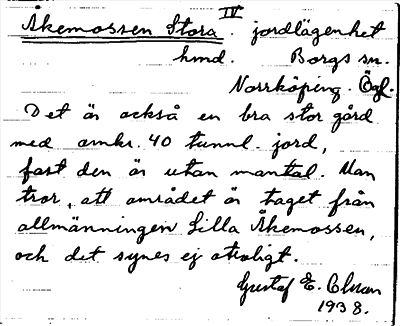 IV
Åkemossen Stora. jordlägenhet
hmd. Borgs sn.
Norrköping. Ögl.
Det är också en bra stor gård
med omkr. 40 tunnl. jord,
fast den är utan mantal. Man
tror, att området är taget från
allmänningen Lilla Åkemossen,
och det synes ej otroligt.
Gustaf E.
1938.